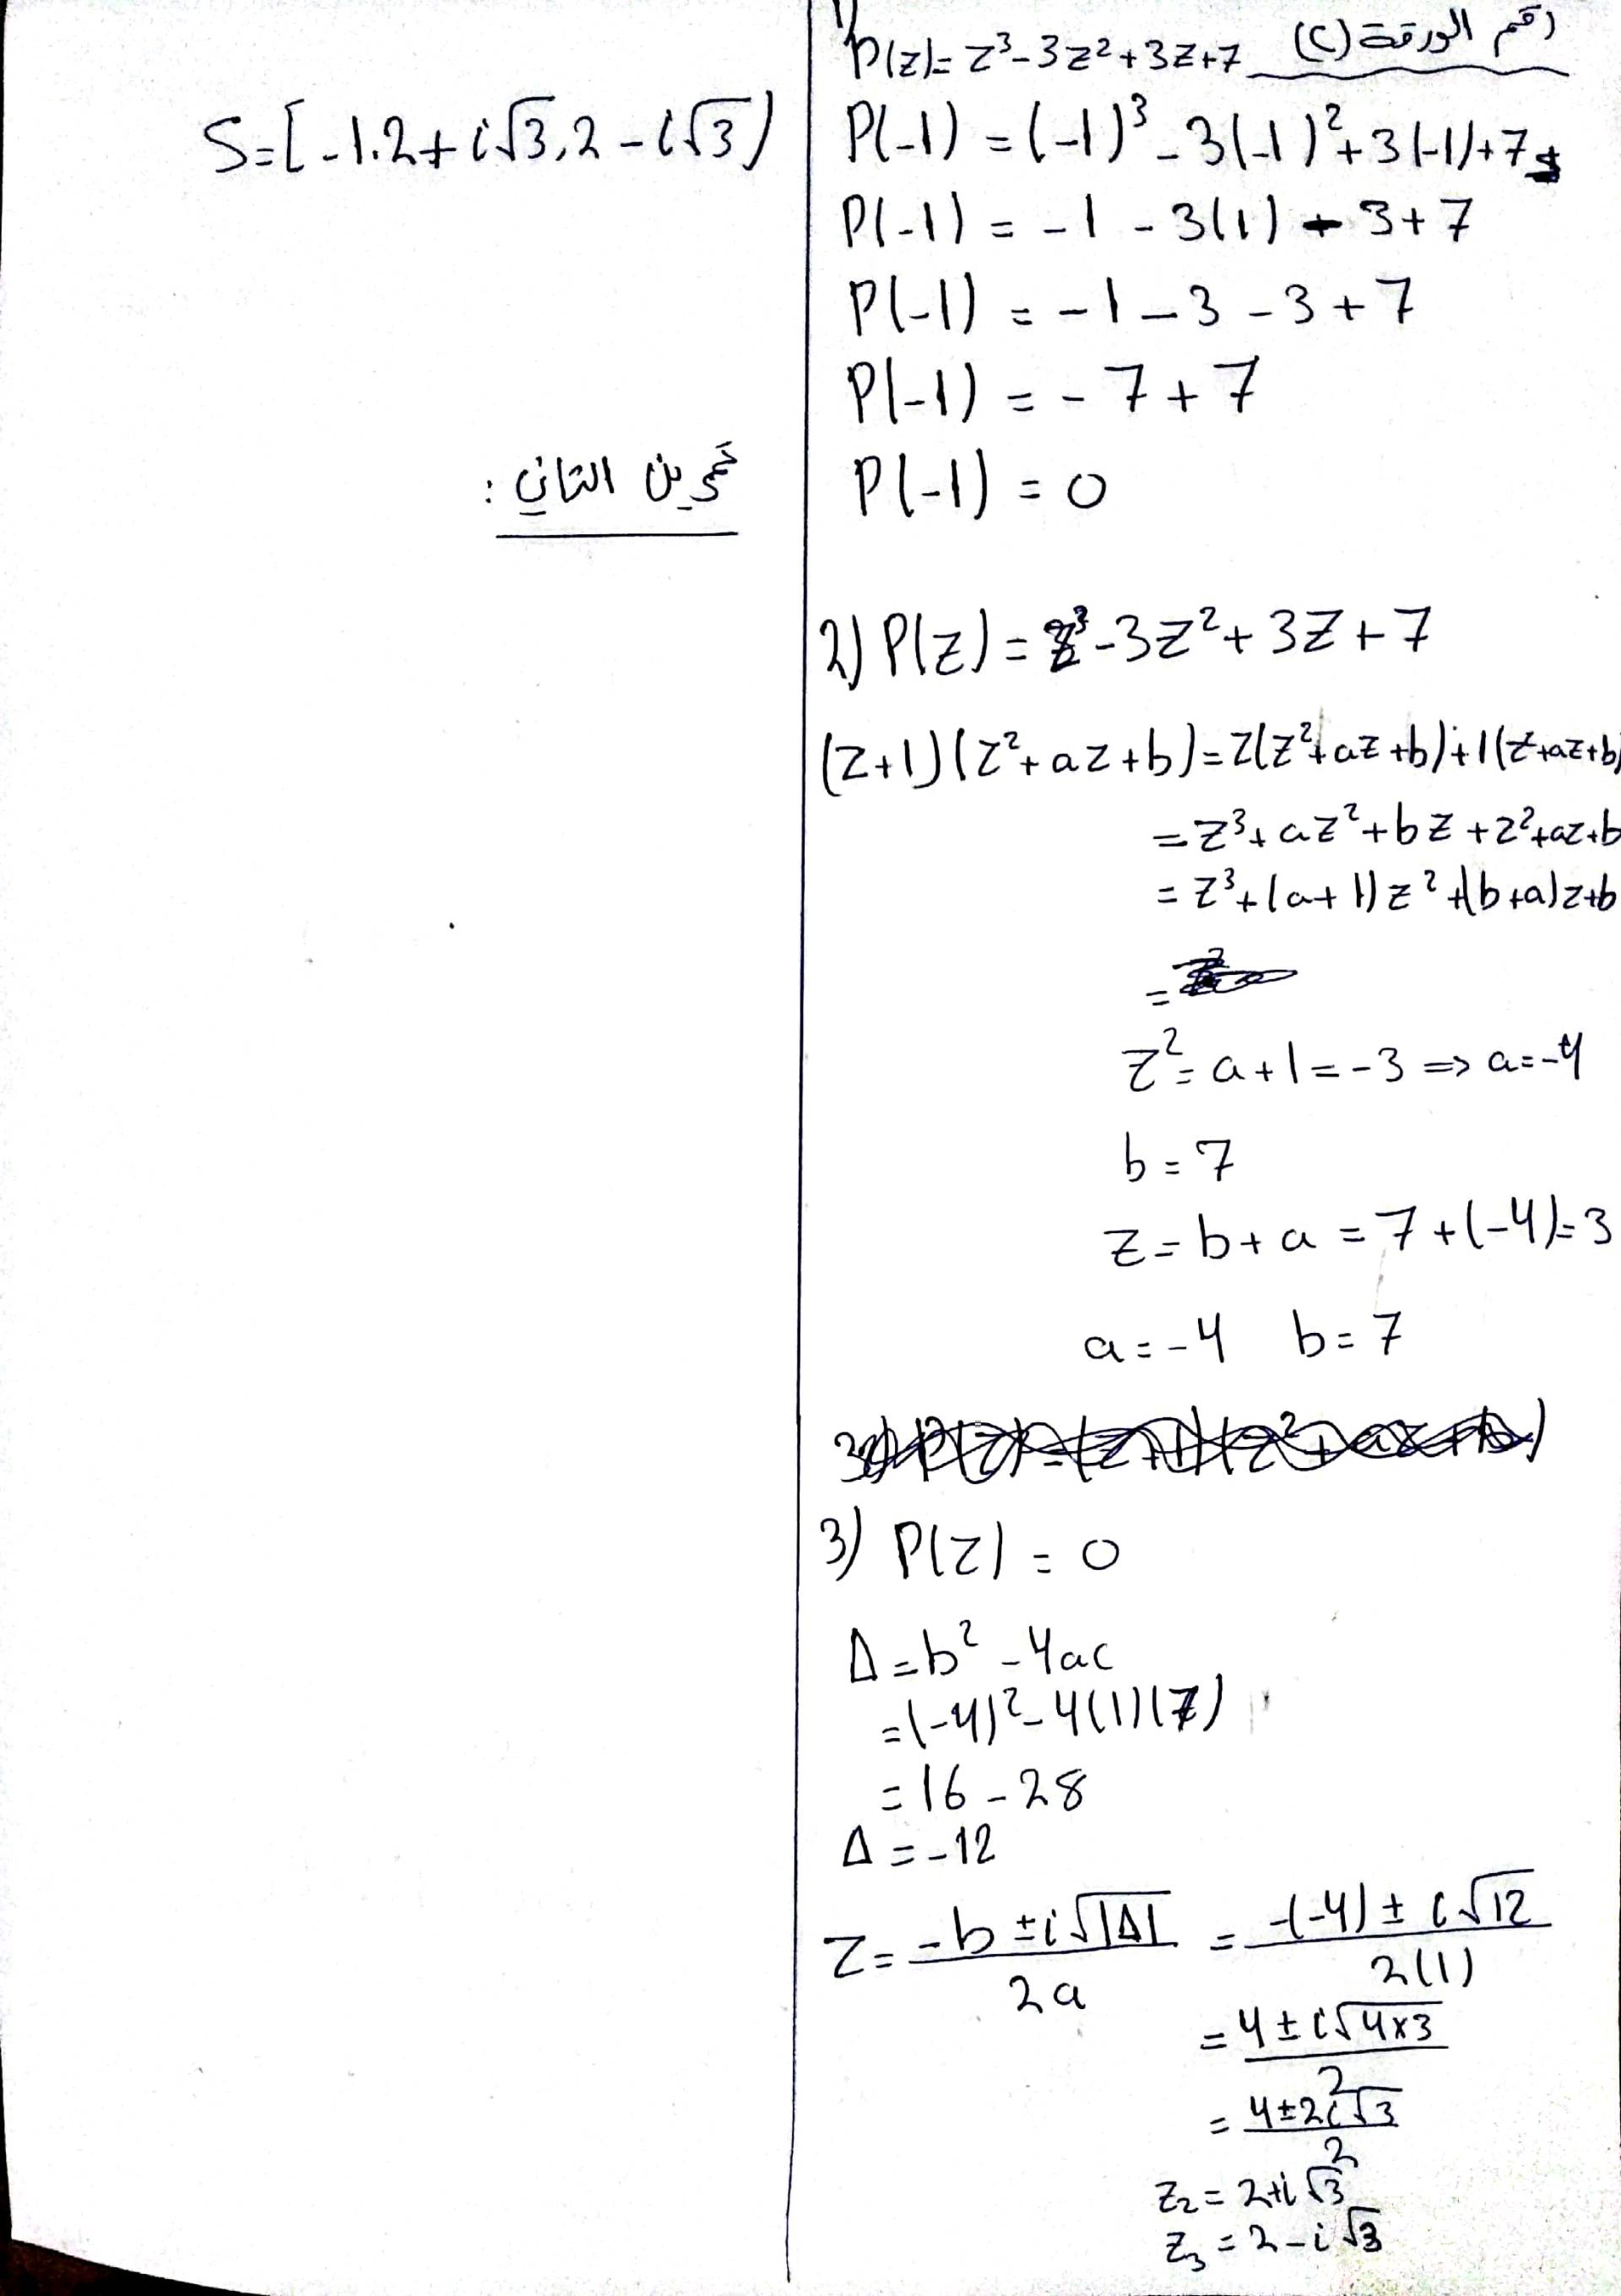 رقم الورقة (2)
1) p(z) = z³ - 3z² + 3z + 7
P(-1) = (-1)³ - 3(-1)² + 3(-1) + 7
P(-1) = -1 - 3(1) - 3 + 7
P(-1) = -1 - 3 - 3 + 7
P(-1) = -7 + 7
P(-1) = 0
2) P(z) = z³ - 3z² + 3z + 7
(z+1)(z² + az + b) = z(z² + az + b) + 1(z² + az + b)
= z³ + az² + bz + z² + az + b
= z³ + (a+1)z² + (b+a)z + b
=
z² = a + 1 = -3 => a = -4
b = 7
z = b + a = 7 + (-4) = 3
a = -4 b = 7
3) P(z) = 0
Δ = b² - 4ac
= (-4)² - 4(1)(7)
= 16 - 28
Δ = -12
z = (-b ± i√|Δ|)/2a = (-(-4) ± i√12)/2(1)
= (4 ± i√4×3)/2
= (4 ± 2i√3)/2
z₂ = 2 + i√3
z₃ = 2 - i√3
S = [-1.2 + i√3, 2 - i√3)
تمرين الثاني :